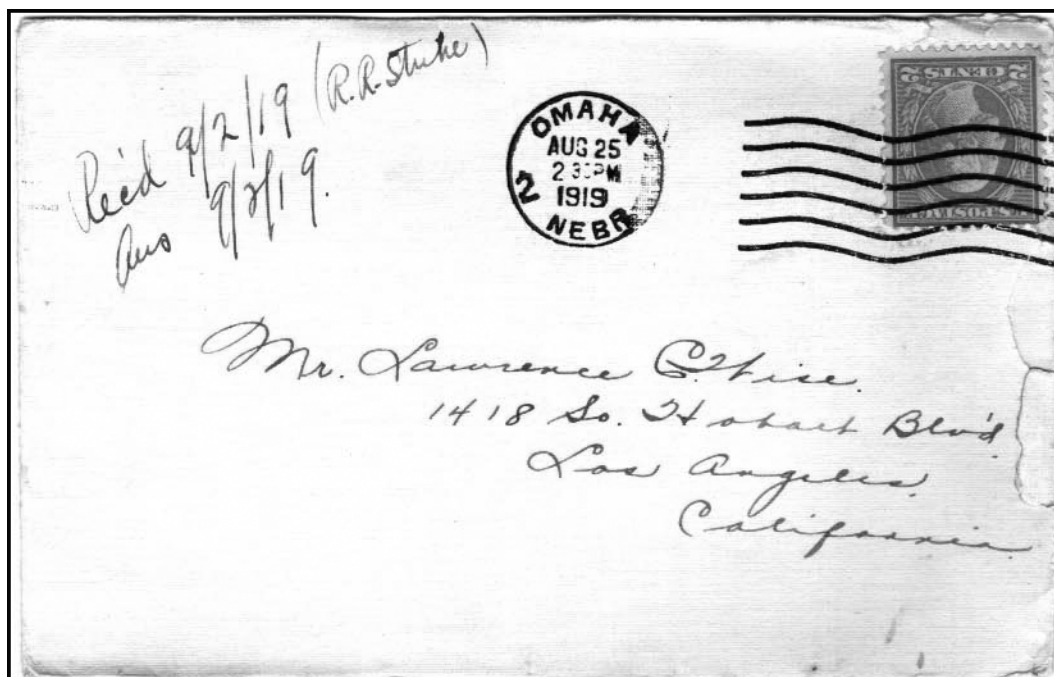 Rec'd 9/2/19 (R.R. Strike)
Ans 9/2/19.
OMAHA
AUG 25
2 30PM
1919
2 NEBR.
2 CENTS 2
U.S. POSTAGE
Mr. Lawrence Hise.
1418 So. Hobart Blv'd
Los Angeles.
California.